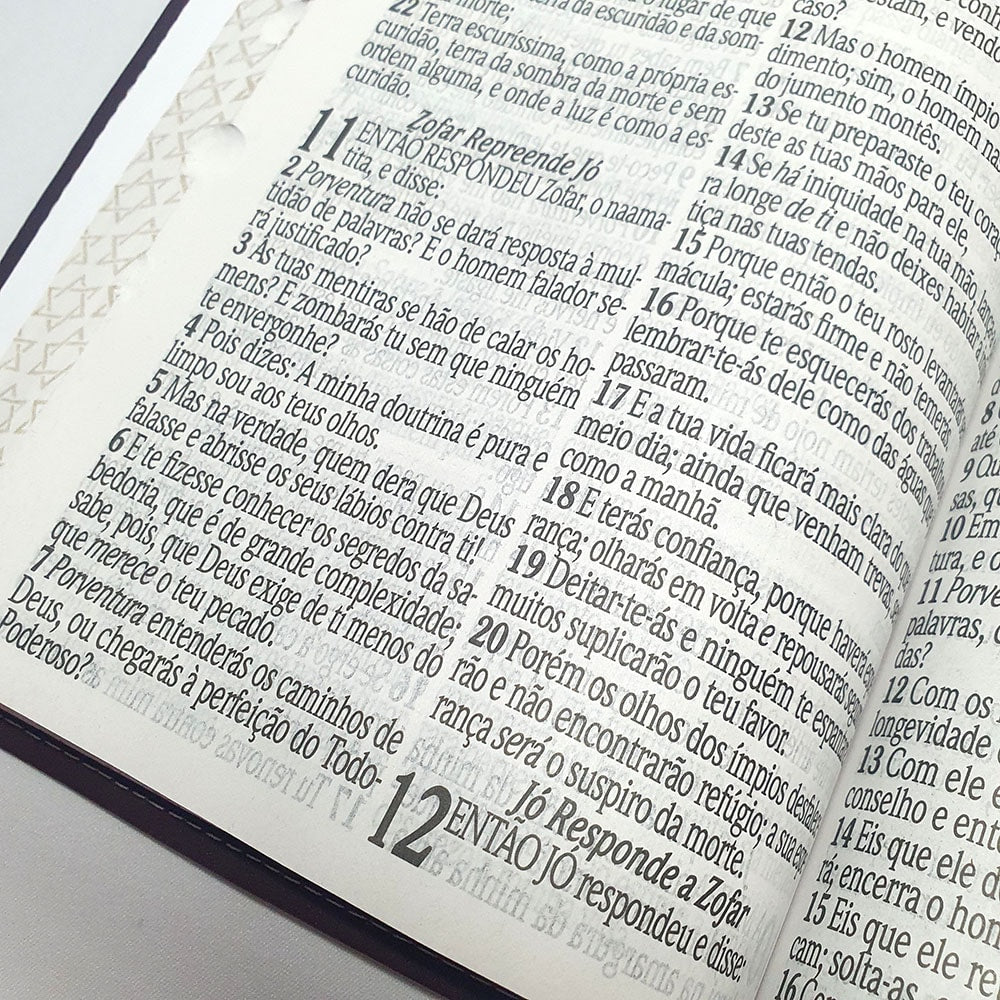 morte;
22 Terra escuríssima, como a própria es-
curidão, terra da sombra da morte e sem
ordem alguma, e onde a luz é como a es-
curidão.
Zofar Repreende Jó
11 ENTÃO RESPONDEU Zofar, o naama-
tita, e disse:
2 Porventura não se dará resposta à mul-
tidão de palavras? E o homem falador se-
rá justificado?
3 Às tuas mentiras se hão de calar os ho-
mens? E zombarás tu sem que ninguém
te envergonhe?
4 Pois dizes: A minha doutrina é pura e
limpo sou aos teus olhos.
5 Mas na verdade, quem dera que Deus
falasse e abrisse os seus lábios contra ti!
6 E te fizesse conhecer os segredos da sa-
bedoria, que é de grande complexidade;
sabe, pois, que Deus exige de tí menos do
que merece o teu pecado.
7 Porventura entenderás os caminhos de
Deus, ou chegarás à perfeição do Todo-
Poderoso?
caso?
12 Mas o homem ímpio
dimento; sim, o homem
do jumento montês.
13 Se tu preparaste o teu
deste as tuas mãos para ele,
14 Se há iniquidade na tua mão,
ra longe de ti e não deixes habitar
tiça nas tuas tendas.
15 Porque então o teu rosto levantarás
mácula; estarás firme e não temerás.
16 Porque te esquecerás dos
lembrar-te-ás dele como das águas que
passaram.
17 E a tua vida ficará mais clara do que
meio dia; ainda que venham trevas,
como a manhã.
18 E terás confiança, porque haverá
rança; olharás em volta e repousarás
19 Deitar-te-ás e ninguém te
muitos suplicarão o teu favor.
20 Porém os olhos dos ímpios
rão e não encontrarão refúgio; a sua
rança será o suspiro da morte.
Jó Responde a Zofar
12 ENTÃO JÓ respondeu e disse:
8
até
9
sas,
10 Em
tura, e o
11
palavras,
das?
12 Com os
longevidade
13 Com ele
conselho e
14 Eis que ele
rá; encerra o
15 Eis que ele
cam; solta-as
16